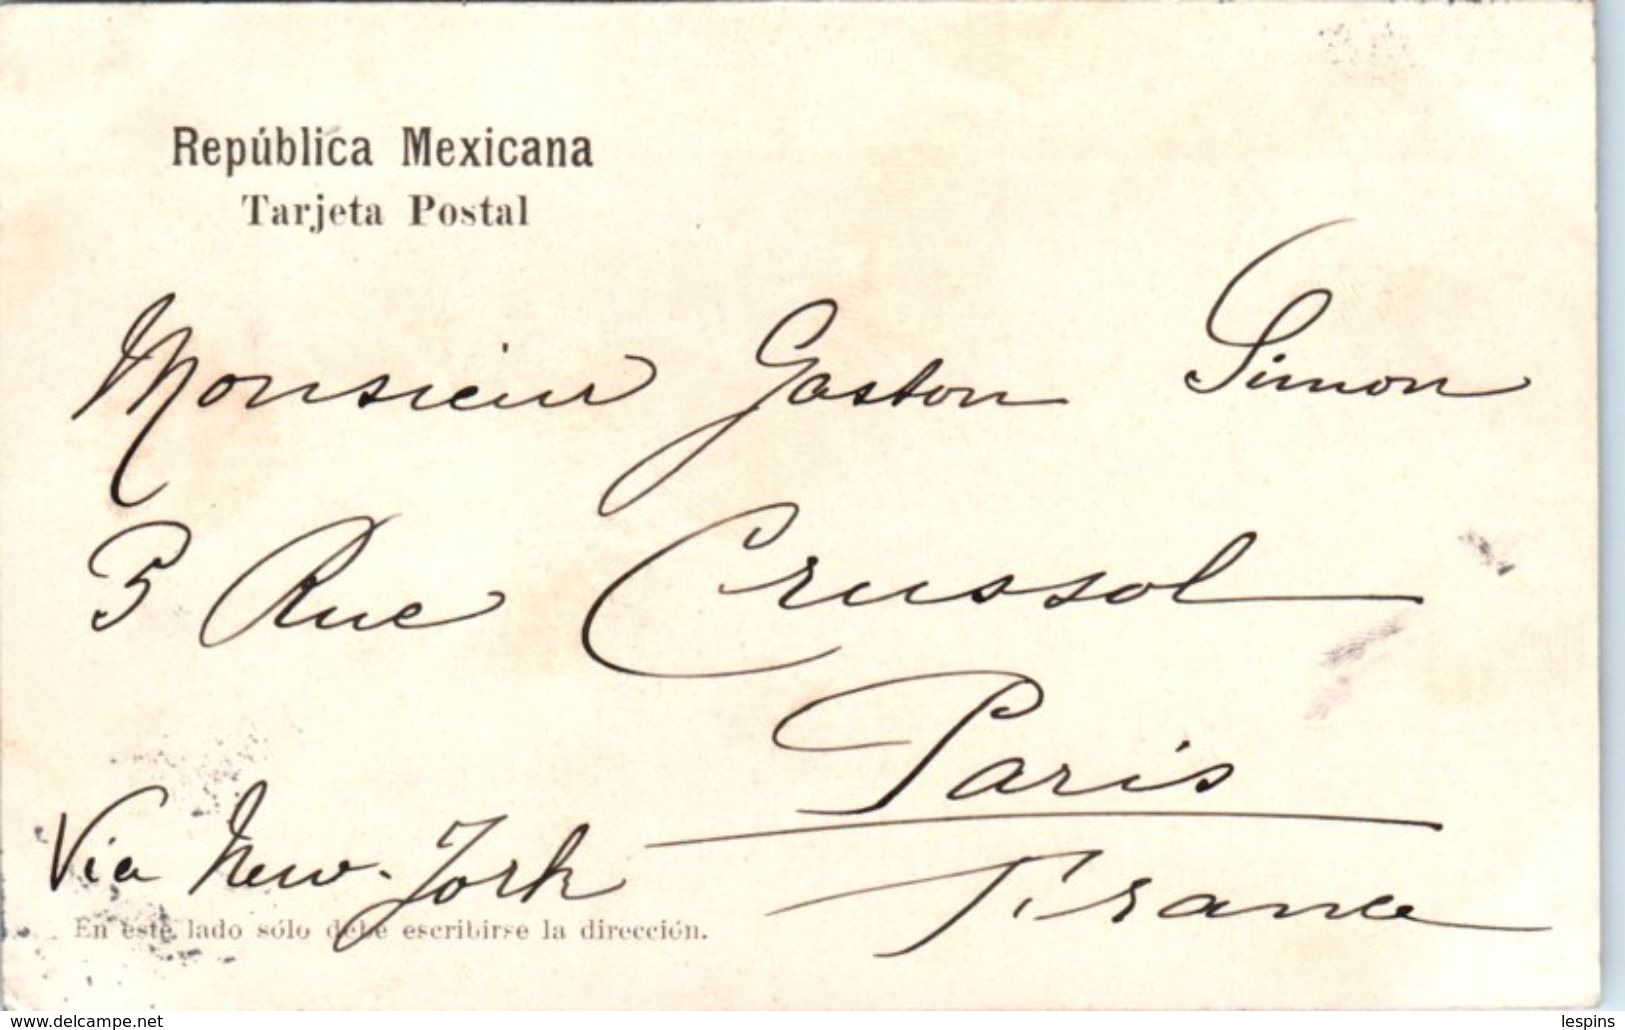 República Mexicana
Tarjeta Postal
Monsieur Gaston Simon
5 Rue Crussol
Paris
Via New-York France
En este lado sólo debe escribirse la dirección.
www.delcampe.net lespins